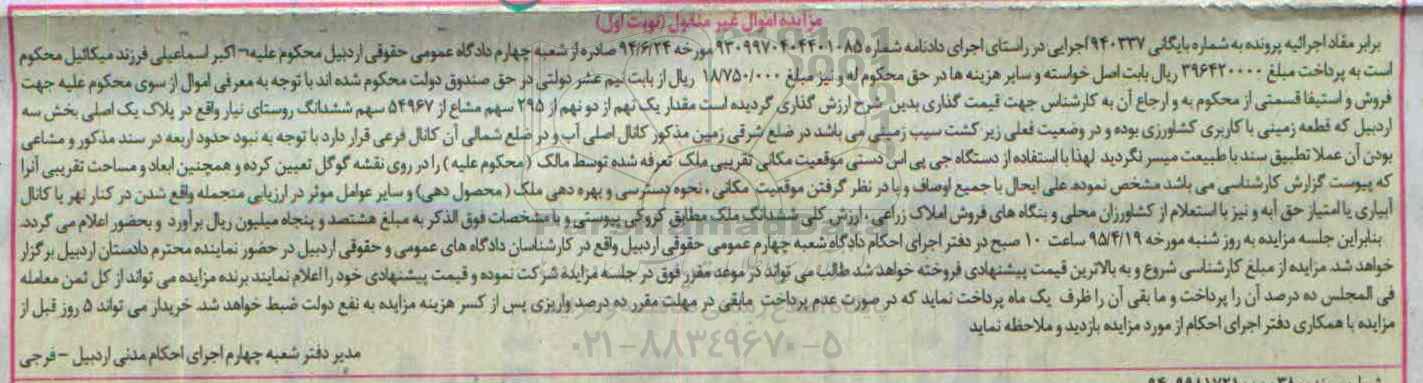 مزایده اموال غیر منقول (نوبت اول)
برابر مفاد اجرائیه پرونده به شماره بایگانی ۹۴۰۳۳۷ اجرایی در راستای اجرای دادنامه شماره ۹۳۰۹۹۷۰۴۰۴۴۰۱۰۸۵ مورخه ۹۴/۶/۲۴ صادره از شعبه چهارم دادگاه عمومی حقوقی اردبیل محکوم علیه- اکبر اسماعیلی فرزند میکائیل محکوم
است به پرداخت مبلغ ۳۹۶۴۲۰۰۰۰ ریال بابت اصل خواسته و سایر هزینه ها در حق محکوم له و نیز مبلغ ۱۸/۷۵۰/۰۰۰ ریال از بابت نیم عشر دولتی در حق صندوق دولت محکوم شده اند با توجه به معرفی اموال از سوی محکوم علیه جهت
فروش و استیفا قسمتی از محکوم به و ارجاع آن به کارشناس جهت قیمت گذاری بدین شرح ارزش گذاری گردیده است مقدار یک نهم از دو نهم از ۲۹۵ سهم مشاع از ۵۴۹۶۷ سهم ششدانگ روستای نیار واقع در پلاک یک اصلی بخش سه
اردبیل که قطعه زمینی با کاربری کشاورزی بوده و در وضعیت فعلی زیر کشت سیب زمینی می باشد در ضلع شرقی زمین مذکور کانال اصلی آب و در ضلع شمالی آن کانال فرعی قرار دارد با توجه به نبود حدود اربعه در سند مذکور و مشاعی
بودن آن عملا تطبیق سند با طبیعت میسر نگردید لهذا با استفاده از دستگاه جی پی اس دستی موقعیت مکانی تقریبی ملک تعرفه شده توسط مالک (محکوم علیه) را در روی نقشه گوگل تعیین کرده و همچنین ابعاد و مساحت تقریبی آنرا
که پیوست گزارش کارشناسی می باشد مشخص نموده. علی ایحال با جمیع اوصاف و با در نظر گرفتن موقعیت مکانی، نحوه دسترسی و بهره دهی ملک (محصول دهی) و سایر عوامل موثر در ارزیابی منجمله واقع شدن در کنار نهر یا کانال
آبیاری یا امتیاز حق آبه و نیز با استعلام از کشاورزان محلی و بنگاه های فروش املاک زراعی، ارزش کلی ششدانگ ملک مطابق کروکی پیوستی و با مشخصات فوق الذکر به مبلغ هشتصد و پنجاه میلیون ریال برآورد و بحضور اعلام می گردد.
بنابراین جلسه مزایده به روز شنبه مورخه ۹۵/۴/۱۹ ساعت ۱۰ صبح در دفتر اجرای احکام دادگاه شعبه چهارم عمومی حقوقی اردبیل واقع در کارشناسان دادگاه های عمومی و حقوقی اردبیل در حضور نماینده محترم دادستان اردبیل برگزار
خواهد شد. مزایده از مبلغ کارشناسی شروع و به بالاترین قیمت پیشنهادی فروخته خواهد شد. طالب می تواند در موعد مقرر فوق در جلسه مزایده شرکت نموده و قیمت پیشنهادی خود را اعلام نمایند برنده مزایده می تواند از کل ثمن معامله
فی المجلس ده درصد آن را پرداخت و ما بقی آن را ظرف یک ماه پرداخت نماید که در صورت عدم پرداخت مابقی در مهلت مقرر ده درصد واریزی پس از کسر هزینه مزایده به نفع دولت ضبط خواهد شد. خریدار می تواند ۵ روز قبل از
مزایده با همکاری دفتر اجرای احکام از مورد مزایده بازدید و ملاحظه نماید
مدیر دفتر شعبه چهارم اجرای احکام مدنی اردبیل - فرجی
۰۲۱-۸۸۳۴۹۶۷۰-۵